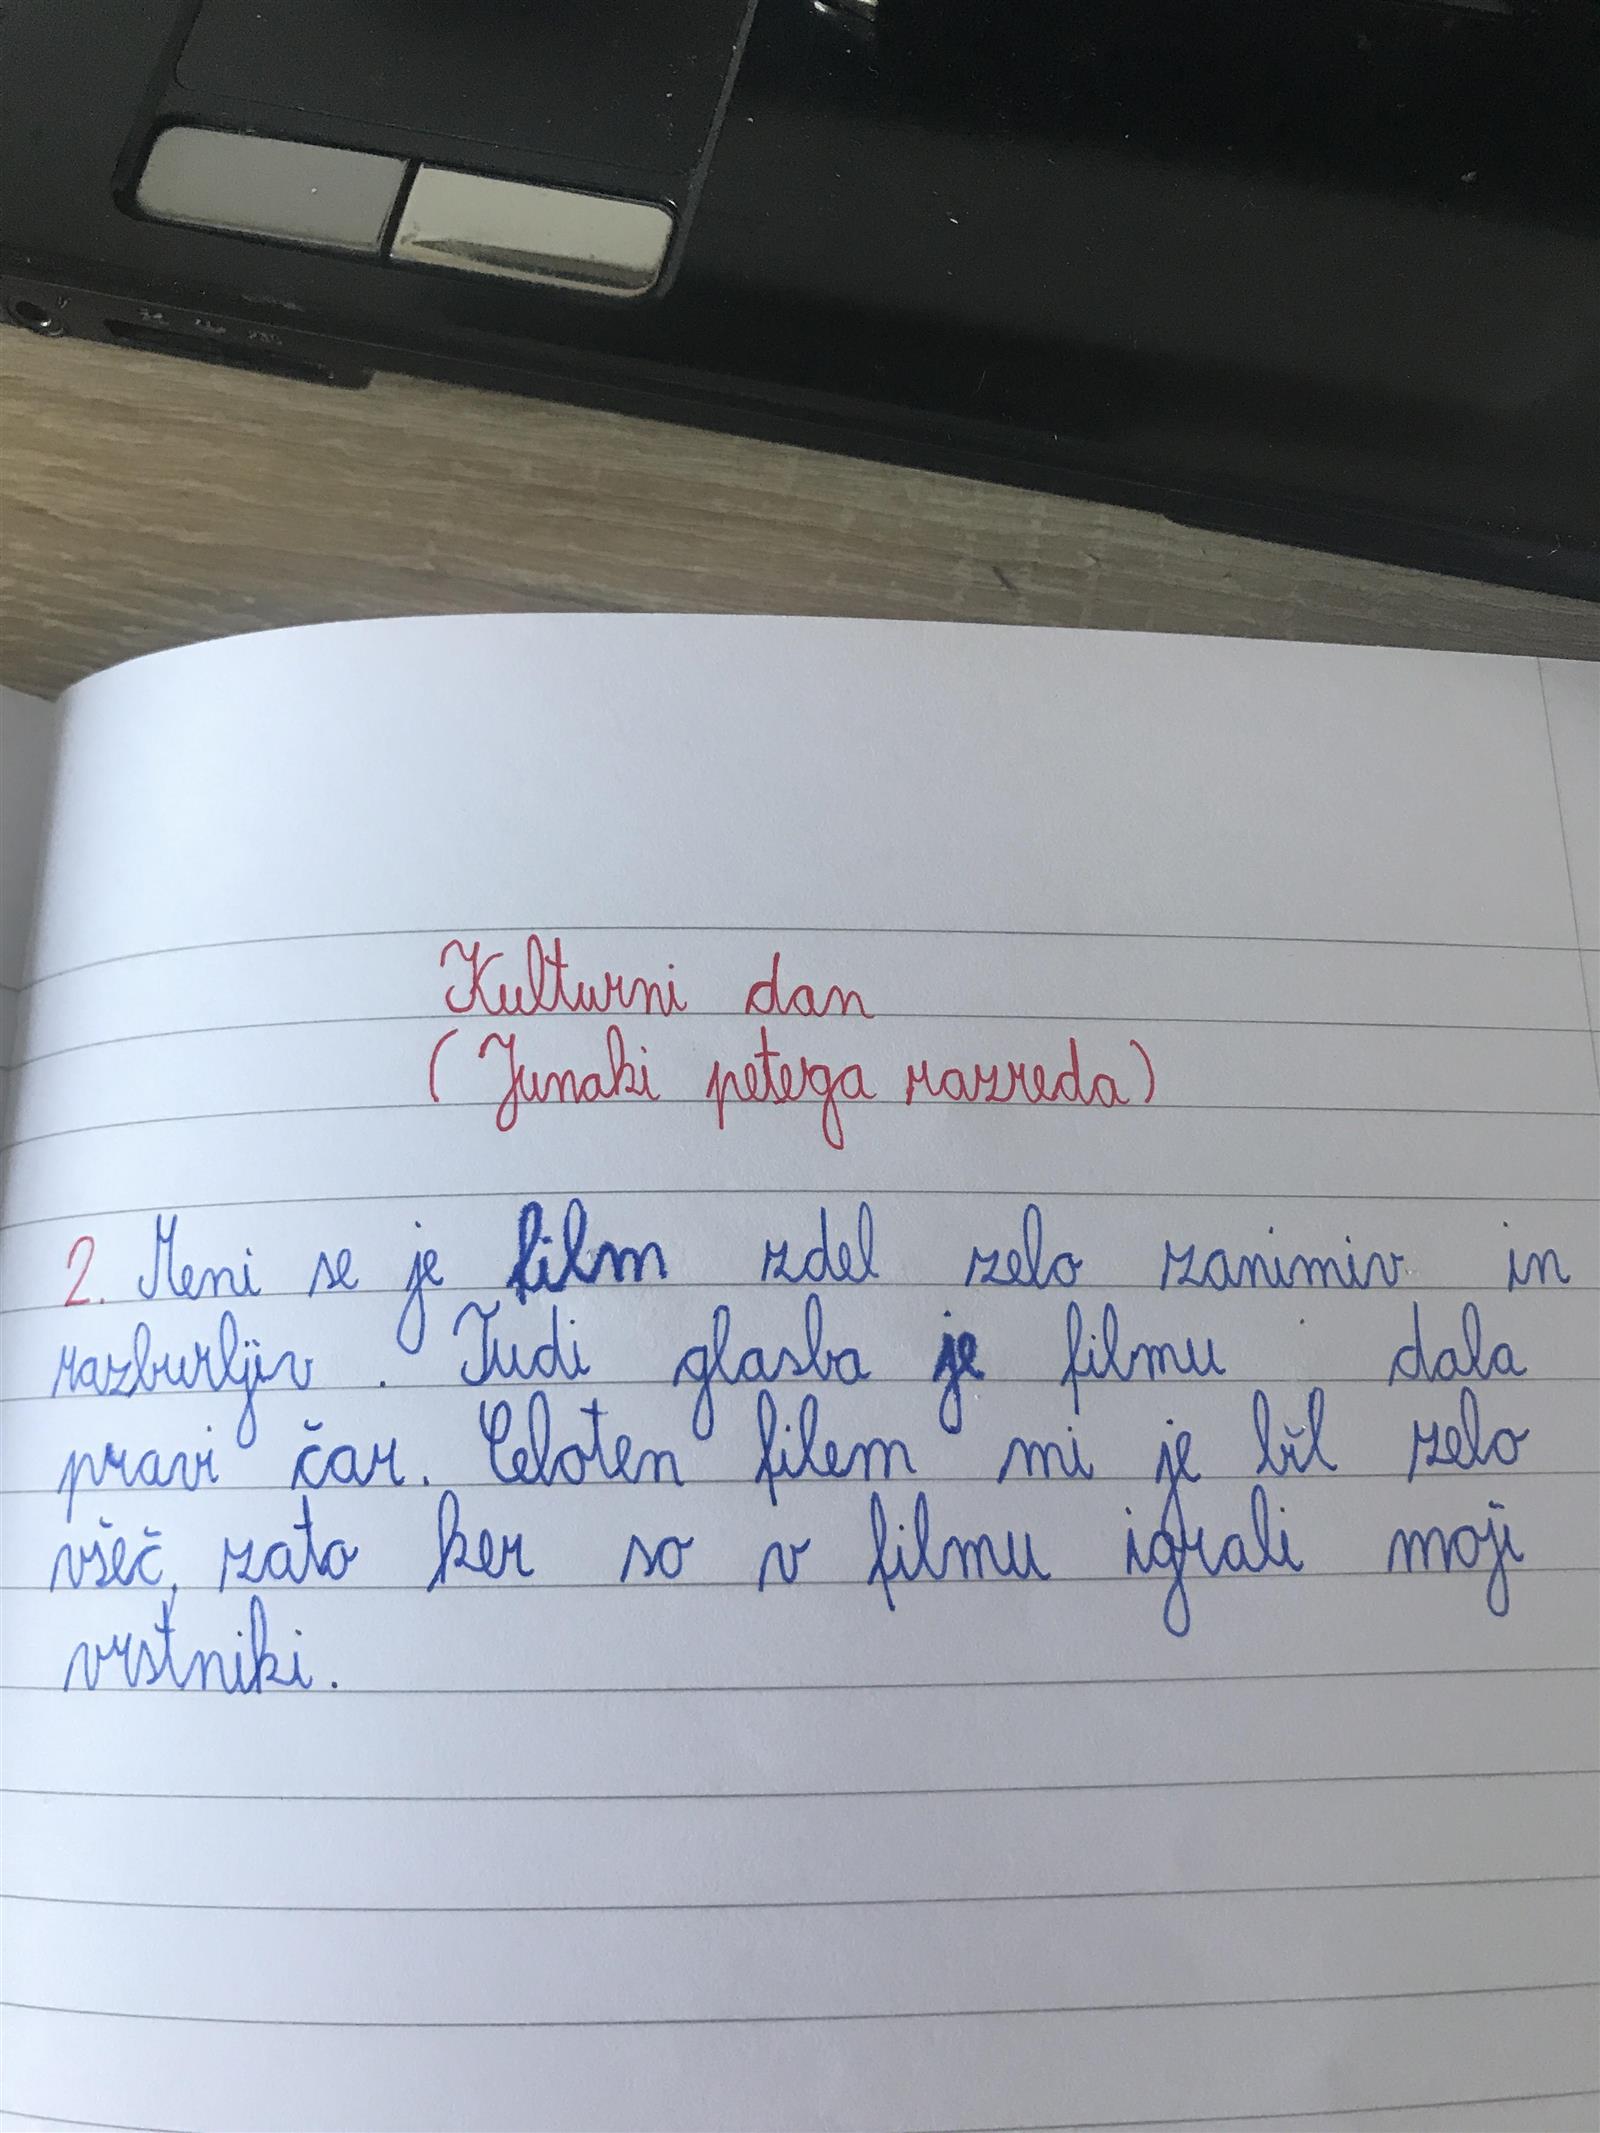 Kulturni dan
(Junaki petega razreda)
2. Meni se je film zdel zelo zanimiv in
razburljiv. Tudi glasba je filmu dala
pravi čar. Celoten filem mi je bil zelo
všeč, zato ker so v filmu igrali moji
vrstniki.